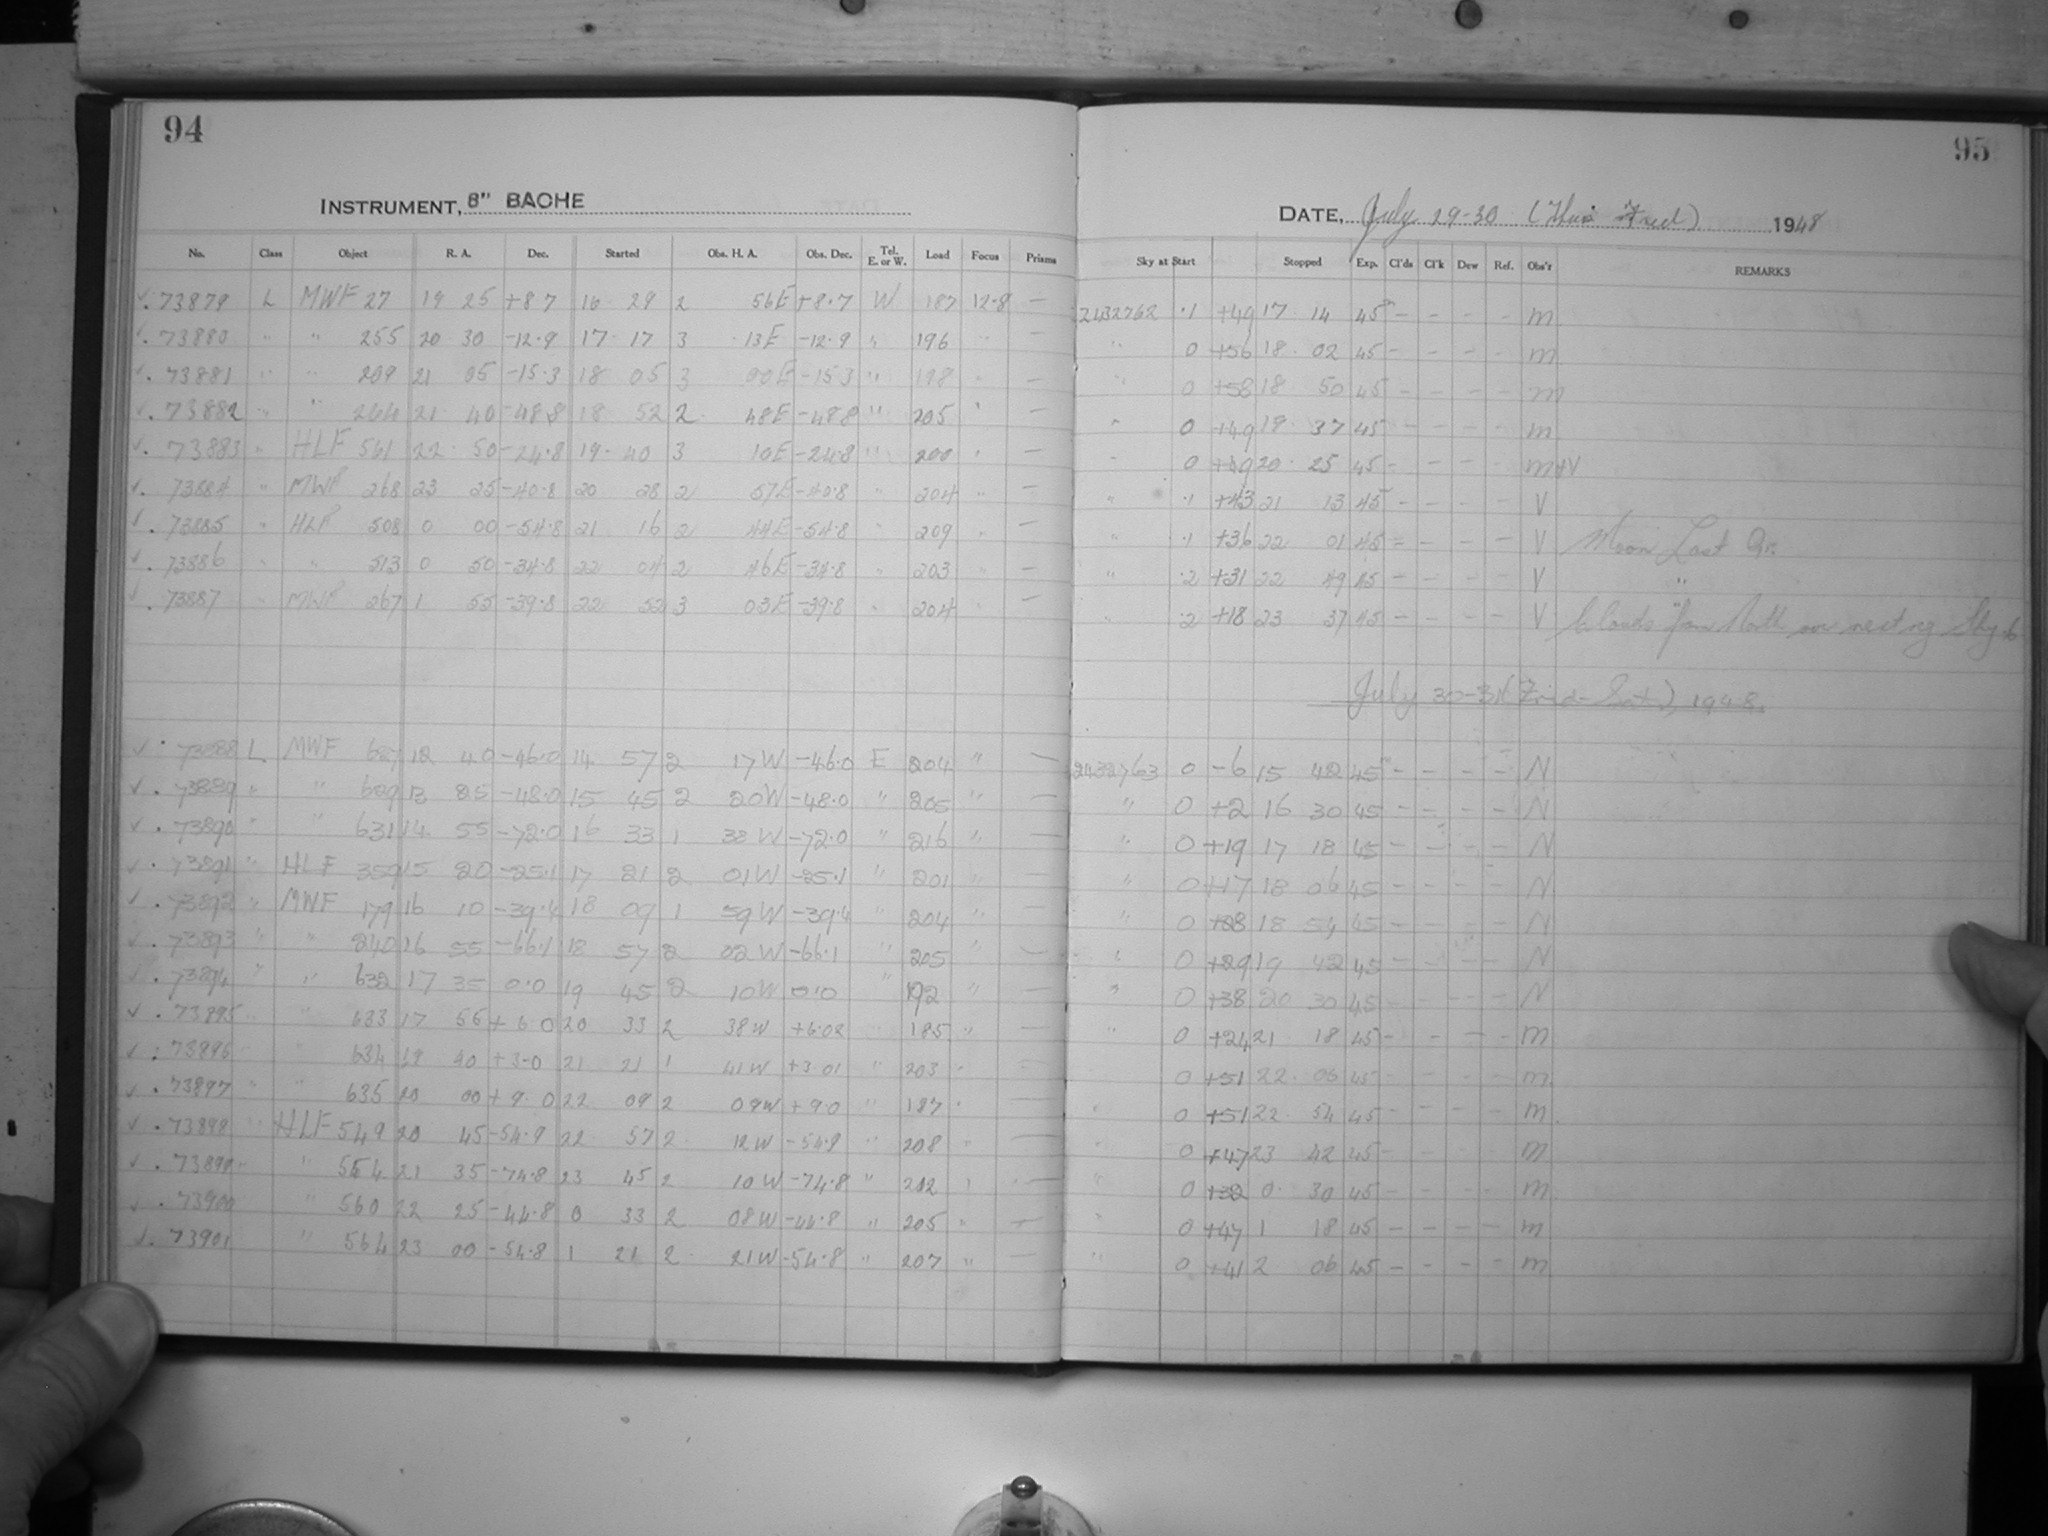 94
INSTRUMENT, 8" BACHE
No. Class Object R. A. Dec. Started Obs. H. A. Obs. Dec. Tel. E. or W. Load Focus Prisms
✓. 73879 L MWF 27 19 25 +8.7 16 29 2 56E +8.7 W 187 12.8 —
✓. 73880 " " 255 20 30 -12.9 17 17 3 13E -12.9 " 196 " —
✓. 73881 " " 209 21 05 -15.3 18 05 3 00E -15.3 " 198 " —
✓. 73882 " " 264 21 40 -48.8 18 52 2 48E -48.8 " 205 " —
✓. 73883 " HLF 561 22 50 -24.8 19 40 3 10E -24.8 " 200 " —
✓. 73884 " MWF 268 23 25 -40.8 20 28 2 57E -40.8 " 204 " —
✓. 73885 " HLF 508 0 00 -54.8 21 16 2 44E -54.8 " 209 " —
✓. 73886 " " 513 0 50 -34.8 22 04 2 46E -34.8 " 203 " —
✓. 73887 " MWF 267 1 55 -39.8 22 52 3 03E -39.8 " 204 " —
✓. 73888 L MWF 627 12 40 -46.0 14 57 2 17W -46.0 E 204 " —
✓. 73889 " " 629 13 25 -48.0 15 45 2 20W -48.0 " 205 " —
✓. 73890 " " 631 14 55 -72.0 16 33 1 38W -72.0 " 216 " —
✓. 73891 " HLF 359 15 20 -25.1 17 21 2 01W -25.1 " 201 " —
✓. 73892 " MWF 179 16 10 -39.4 18 09 1 59W -39.4 " 204 " —
✓. 73893 " " 240 16 55 -66.1 18 57 2 02W -66.1 " 205 " —
✓. 73894 " " 632 17 35 0.0 19 45 2 10W 0.0 " 192 " —
✓. 73895 " " 633 17 56 +6.0 20 33 2 38W +6.02 " 185 " —
✓. 73896 " " 634 19 40 +3.0 21 21 1 41W +3.01 " 203 " —
✓. 73897 " " 635 20 00 +9.0 22 09 2 09W +9.0 " 187 " —
✓. 73898 " HLF 549 20 45 -54.9 22 57 2 12W -54.9 " 208 " —
✓. 73899 " " 554 21 35 -74.8 23 45 2 10W -74.8 " 212 " —
✓. 73900 " 560 22 25 -44.8 0 33 2 08W -44.8 " 205 " —
✓. 73901 " 564 23 00 -54.8 1 21 2 21W -54.8 " 207 " —
95
DATE, July 29-30 (Thur Fried) 1948
Sky at Start Stopped Exp. Cl'ds Cl'k Dew Ref. Obs'r REMARKS
2432762 .1 +49 17 14 45m - - - - m
" 0 +56 18 02 45 - - - - m
" 0 +58 18 50 45 - - - - m
" 0 +49 19 37 45 - - - - m
" 0 +49 20 25 45 - - - - m+V
" .1 +43 21 13 45 - - - - V
" .1 +36 22 01 45 - - - - V Moon Last Qr.
" .2 +31 22 49 45 - - - - V "
" .2 +18 23 37 45 - - - - V Clouds from North
July 30-31 (Frid-Sat), 1948.
2432763 0 -6 15 42 45m - - - - N
" 0 +2 16 30 45 - - - - N
" 0 +19 17 18 45 - - - - N
" 0 +17 18 06 45 - - - - N
" 0 +28 18 54 45 - - - - N
" 0 +29 19 42 45 - - - - N
" 0 +38 20 30 45 - - - - N
" 0 +24 21 18 45 - - - - m
0 +51 22 06 45 - - - - m
" 0 +51 22 54 45 - - - - m
" 0 +47 23 42 45 - - - - m
" 0 +32 0 30 45 - - - - m
" 0 +47 1 18 45 - - - - m
" 0 +41 2 06 45 - - - - m